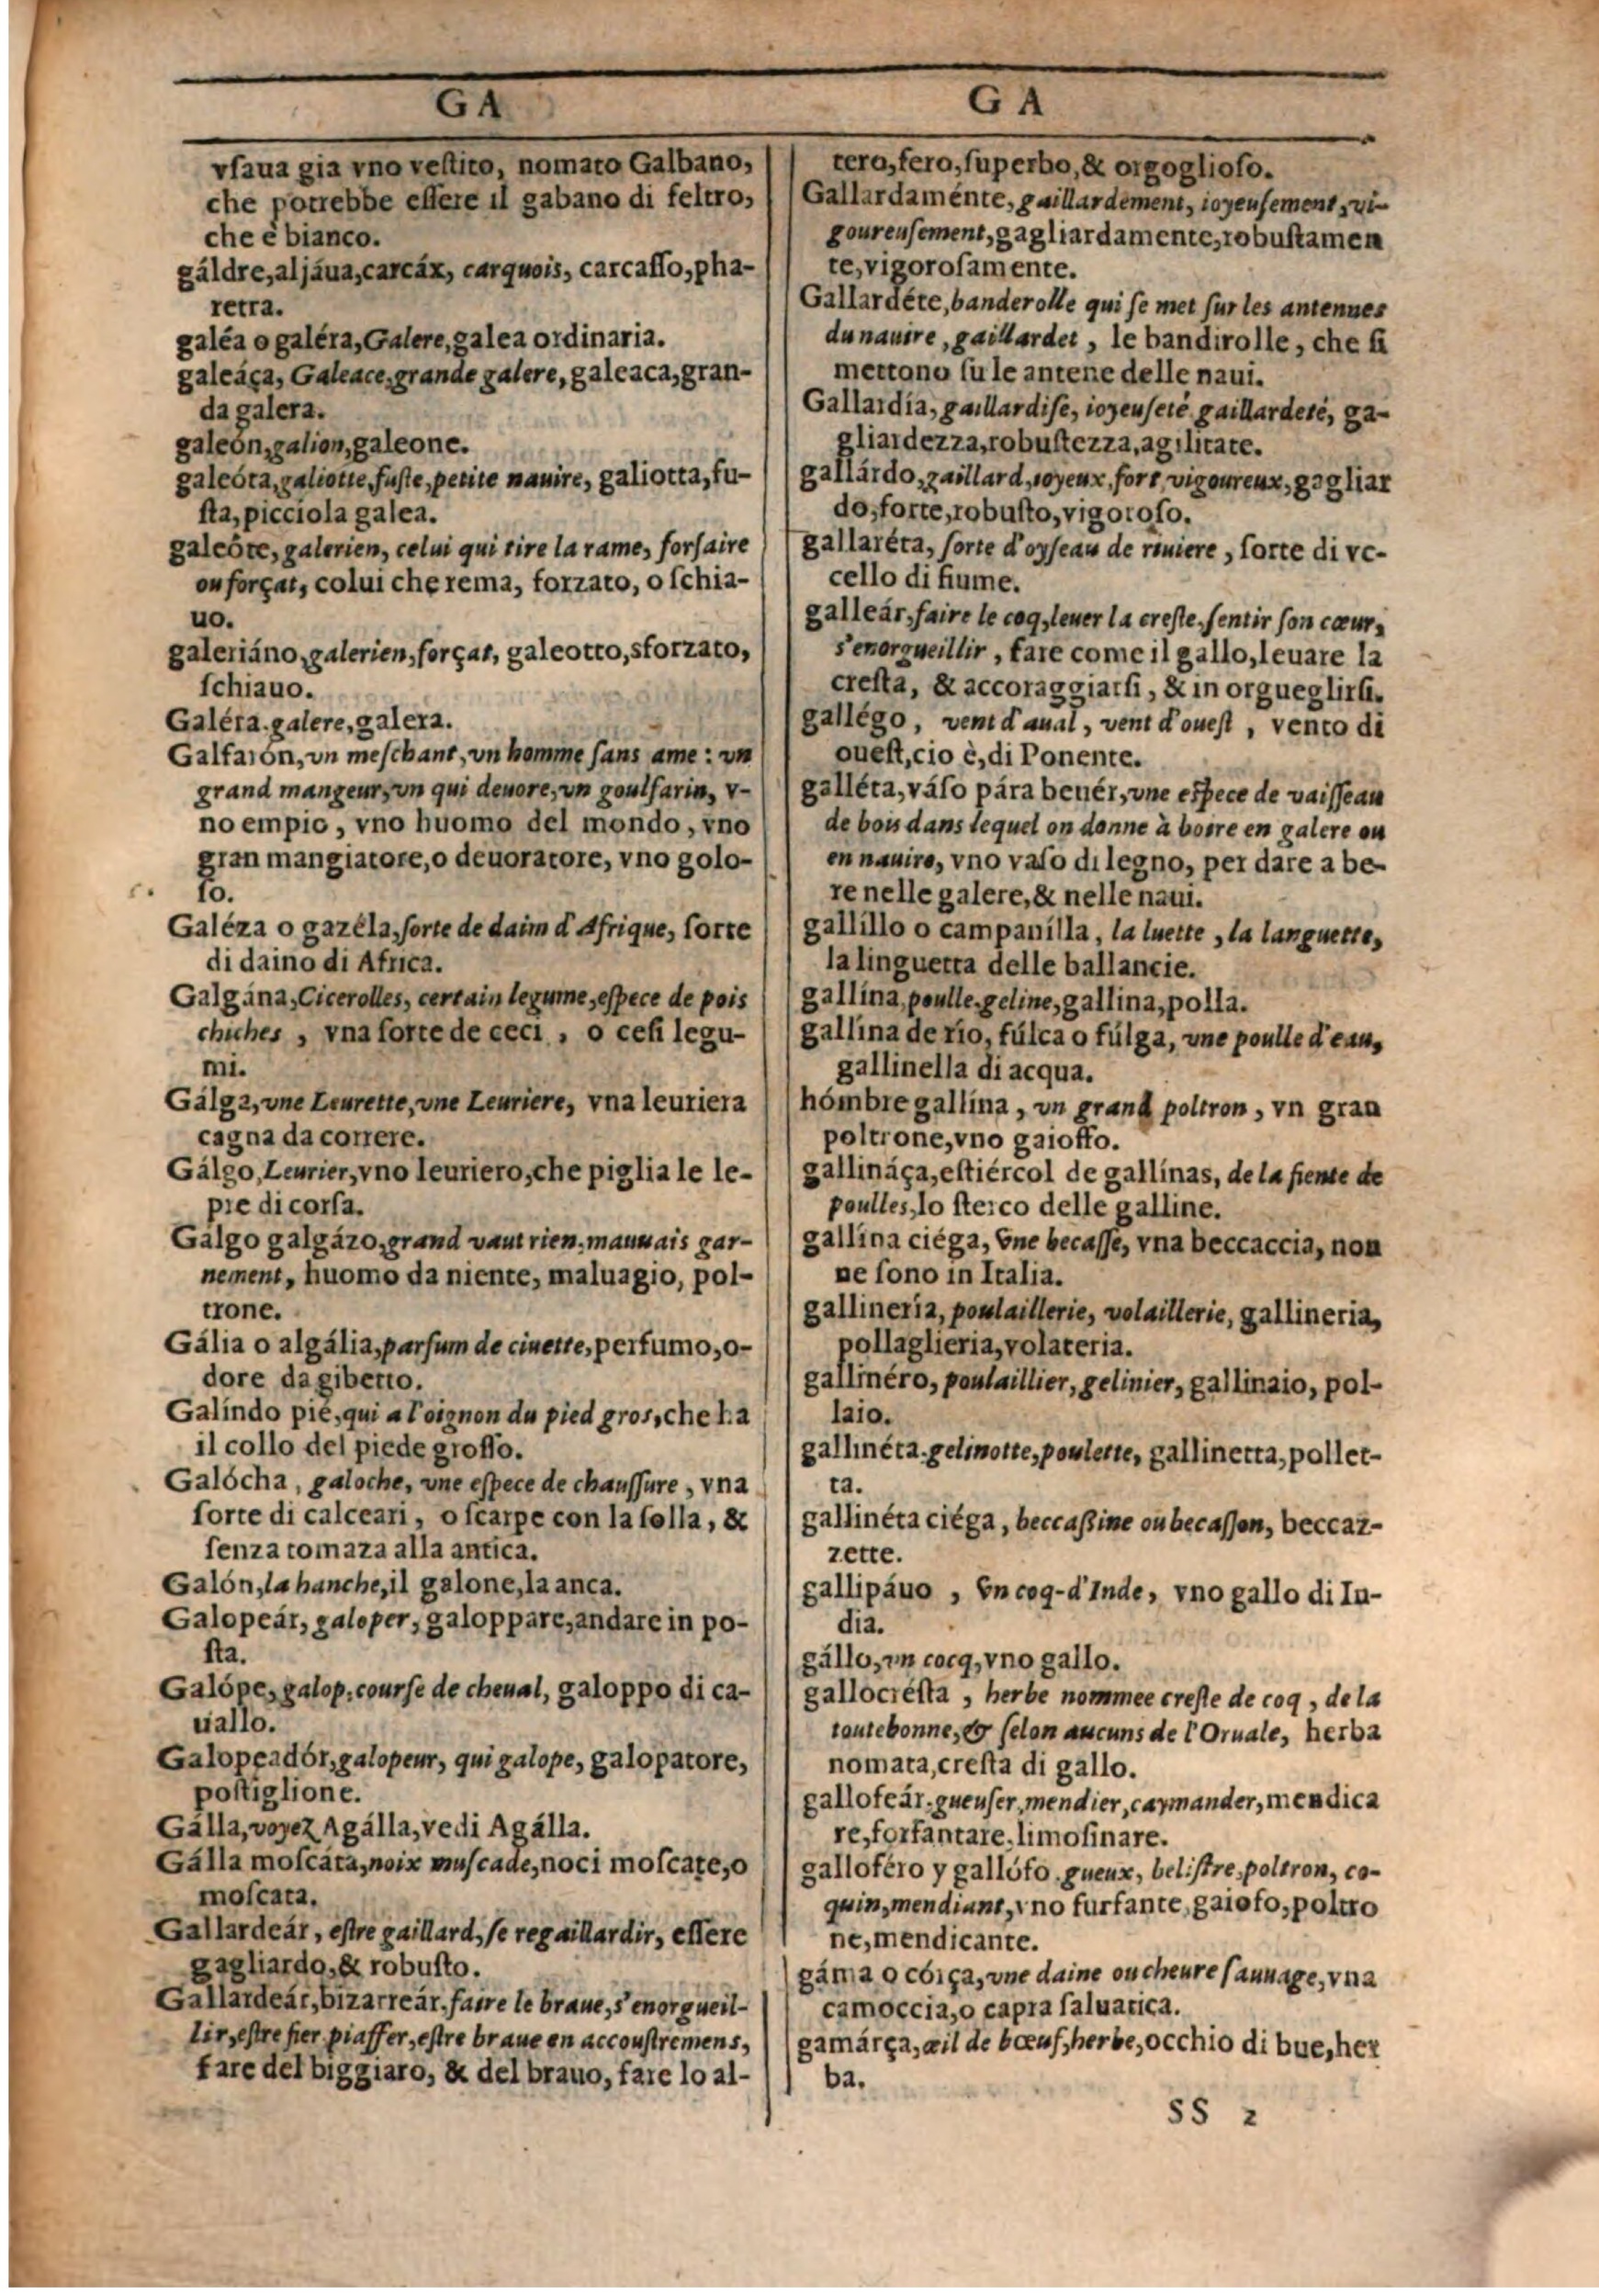 GA
vſaua gia vno veſtito, nomato Galbano,
che potrebbe eſſere il gabano di feltro,
che è bianco.
gáldre, aljáua, carcáx, carquois, carcaſſo, pha-
retra.
galéa o galéra, Galere, galea ordinaria.
galeáça, Galeace, grande galere, galeaca, gran-
da galera.
galeón, galion, galeone.
galeóta, galiotte, fuſte, petite nauire, galiotta, fu-
ſta, picciola galea.
galeóte, galerien, celui qui tire la rame, forſaire
ou forçat, colui che rema, forzato, o ſchia-
uo.
galeriáno, galerien, forçat, galeotto, sforzato,
ſchiauo.
Galéra. galere, galera.
Galfarón, vn meſchant, vn homme ſans ame: vn
grand mangeur, vn qui deuore, vn goulfarin, v-
no empio, vno huomo del mondo, vno
gran mangiatore, o deuoratore, vno golo-
ſo.
Galéza o gazéla, ſorte de daim d'Afrique, ſorte
di daino di Africa.
Galgána, Cicerolles, certain legume, eſpece de pois
chiches, vna ſorte de ceci, o ceſi legu-
mi.
Gálga, vne Leurette, vne Leuriere, vna leuriera
cagna da correre.
Gálgo, Leurier, vno leuriero, che piglia le le-
pre di corſa.
Gálgo galgázo, grand vaut rien, mauuais gar-
nement, huomo da niente, maluagio, pol-
trone.
Gália o algália, parfum de ciuette, perfumo, o-
dore da gibetto.
Galíndo pié, qui a l'oignon du pied gros, che ha
il collo del piede groſſo.
Galócha, galoche, vne eſpece de chauſſure, vna
ſorte di calceari, o ſcarpe con la ſolla, &
ſenza tomaza alla antica.
Galón, la hanche, il galone, la anca.
Galopeár, galoper, galoppare, andare in po-
ſta.
Galópe, galop, courſe de cheual, galoppo di ca-
uallo.
Galopeadór, galopeur, qui galope, galopatore,
poſtiglione.
Gálla, voyez Agálla, vedi Agálla.
Gálla moſcáta, noix muſcade, noci moſcate, o
moſcata.
Gallardeár, eſtre gaillard, ſe regaillardir, eſſere
gagliardo, & robuſto.
Gallardeár, bizarreár, faire le braue, s'enorgueil-
lir, eſtre fier piaffer, eſtre braue en accouſtremens,
fare del biggiaro, & del brauo, fare lo al-
GA
tero, fero, ſuperbo, & orgoglioſo.
Gallardaménte, gaillardement, ioyeuſement, vi-
goureuſement, gagliardamente, robuſtamen
te, vigoroſamente.
Gallardéte, banderolle qui ſe met ſur les antennes
du nauire, gaillardet, le bandirolle, che ſi
mettono ſu le antene delle naui.
Gallardía, gaillardiſe, ioyeuſeté gaillardeté, ga-
gliardezza, robuſtezza, agilitate.
gallárdo, gaillard, ioyeux, fort, vigoureux, gagliar
do, forte, robuſto, vigoroſo.
gallaréta, ſorte d'oyſeau de riuiere, ſorte di vc-
cello di fiume.
galleár, faire le coq, leuer la creſte, ſentir ſon cœur,
s'enorgueillir, fare come il gallo, leuare la
creſta, & accoraggiarſi, & in orgueglirſi.
gallégo, vent d'aual, vent d'oueſt, vento di
oueſt, cio è, di Ponente.
galléta, váſo pára beuér, vne eſpece de vaiſſeau
de bois dans lequel on donne à boire en galere ou
en nauire, vno vaſo di legno, per dare a be-
re nelle galere, & nelle naui.
gallíllo o campanílla, la luette, la languette,
la linguetta delle ballancie.
gallína, poulle, geline, gallina, polla.
gallína de río, fúlca o fúlga, vne poulle d'eau,
gallinella di acqua.
hómbre gallína, vn grand poltron, vn gran
poltrone, vno gaioffo.
gallináça, eſtiércol de gallínas, de la fiente de
poulles, lo ſterco delle galline.
gallína ciéga, vne becaſſe, vna beccaccia, non
ne ſono in Italia.
gallinería, poulaillerie, volaillerie, gallineria,
pollaglieria, volateria.
gallinéro, poulaillier, gelinier, gallinaio, pol-
laio.
gallinéta. gelinotte, poulette, gallinetta, pollet-
ta.
gallinéta ciéga, beccaßine ou becaſſon, beccaz-
zette.
gallipáuo, vn coq-d'Inde, vno gallo di In-
dia.
gállo, vn cocq, vno gallo.
gallocréſta, herbe nommee creſte de coq, de la
toutebonne, & ſelon aucuns de l'Oruale, herba
nomata, creſta di gallo.
gallofeár. gueuſer, mendier, caymander, mendica
re, forfantare, limoſinare.
galloféro y gallófo. gueux, beliſtre, poltron, co-
quin, mendiant, vno furfante, gaiofo, poltro
ne, mendicante.
gáma o córça, vne daine ou cheure ſauuage, vna
camoccia, o capra ſaluatica.
gamárça, œil de bœuf, herbe, occhio di bue, her
ba.
SS 2